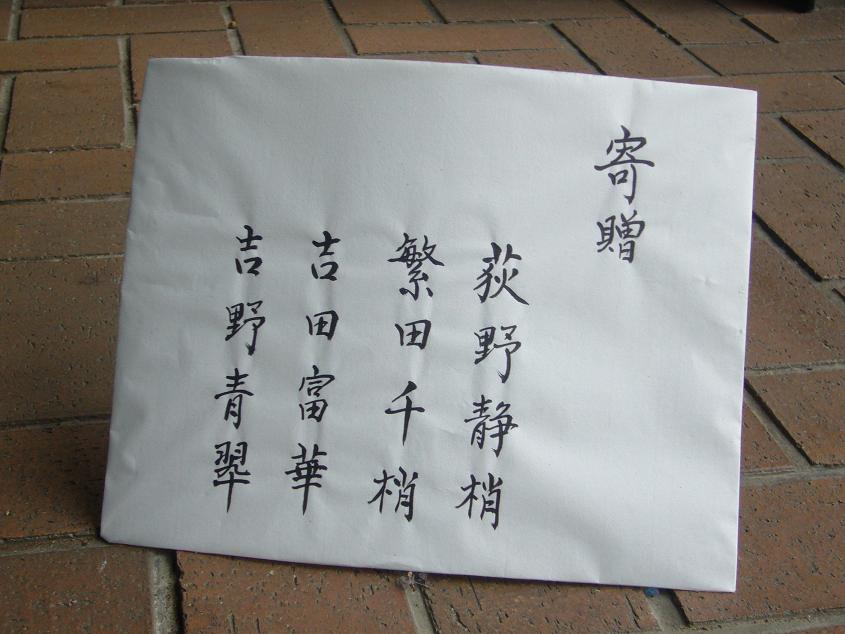 寄贈
荻野静梢
繁田千梢
吉田富華
吉野青翆